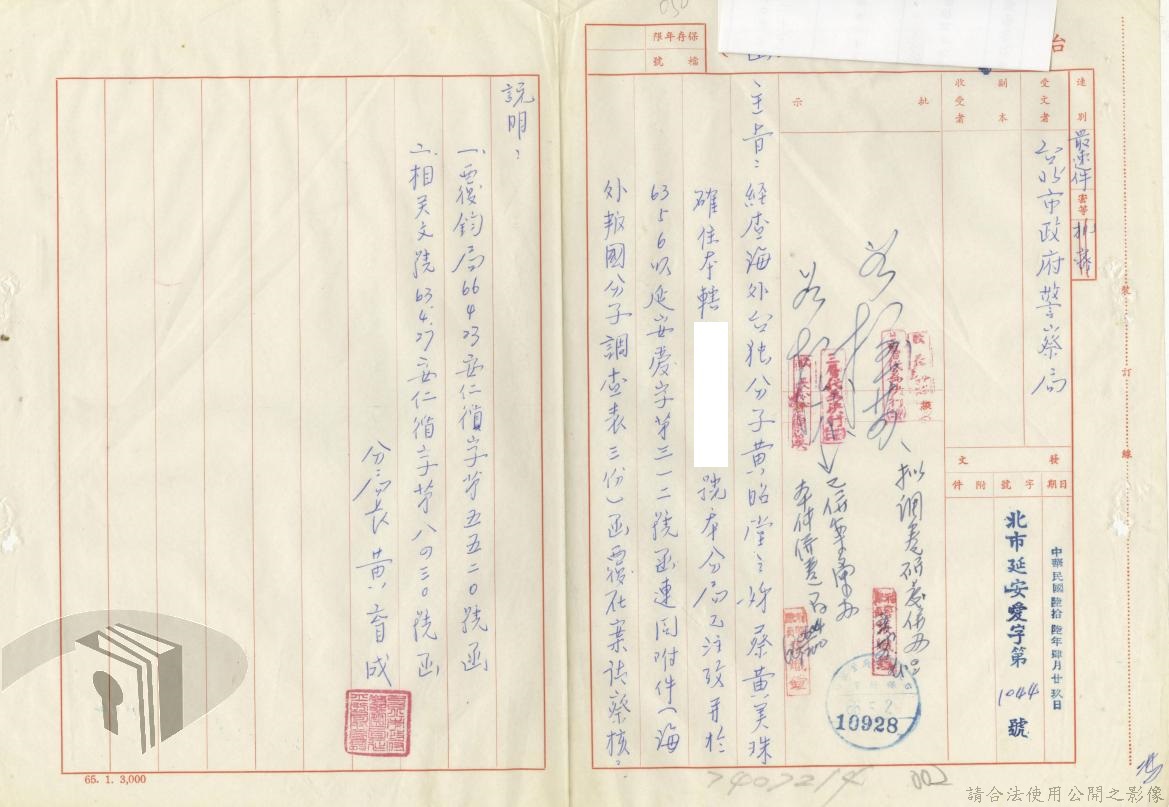 保存年限
檔號
台
速別
最速件
密等
受文者
台北市政府警察局
副本收受者
批示
發文
日期
字號
附件
中華民國陸拾陸年肆月廿玖日
北市延安愛字第1044號
擬調卷研處併办
已併筆肅办
本件併卷
10928
主旨：經查海外台独分子黃昭堂之妹蔡黃美珠
確住本轄
號本分局已注改并於
63 5 6以延安愛字第三一二號函連同附件（海
外叛國分子調查表三份）函覆在案請察核。
說明：
一、覆鈞局66 4 23安仁偵字第五五二0號函
二、相关文號63.4.27安仁偵字第八四三0號函
分局長 黃育成
裝
訂
線
65. 1. 3,000
7407214
002
請合法使用公開之影像